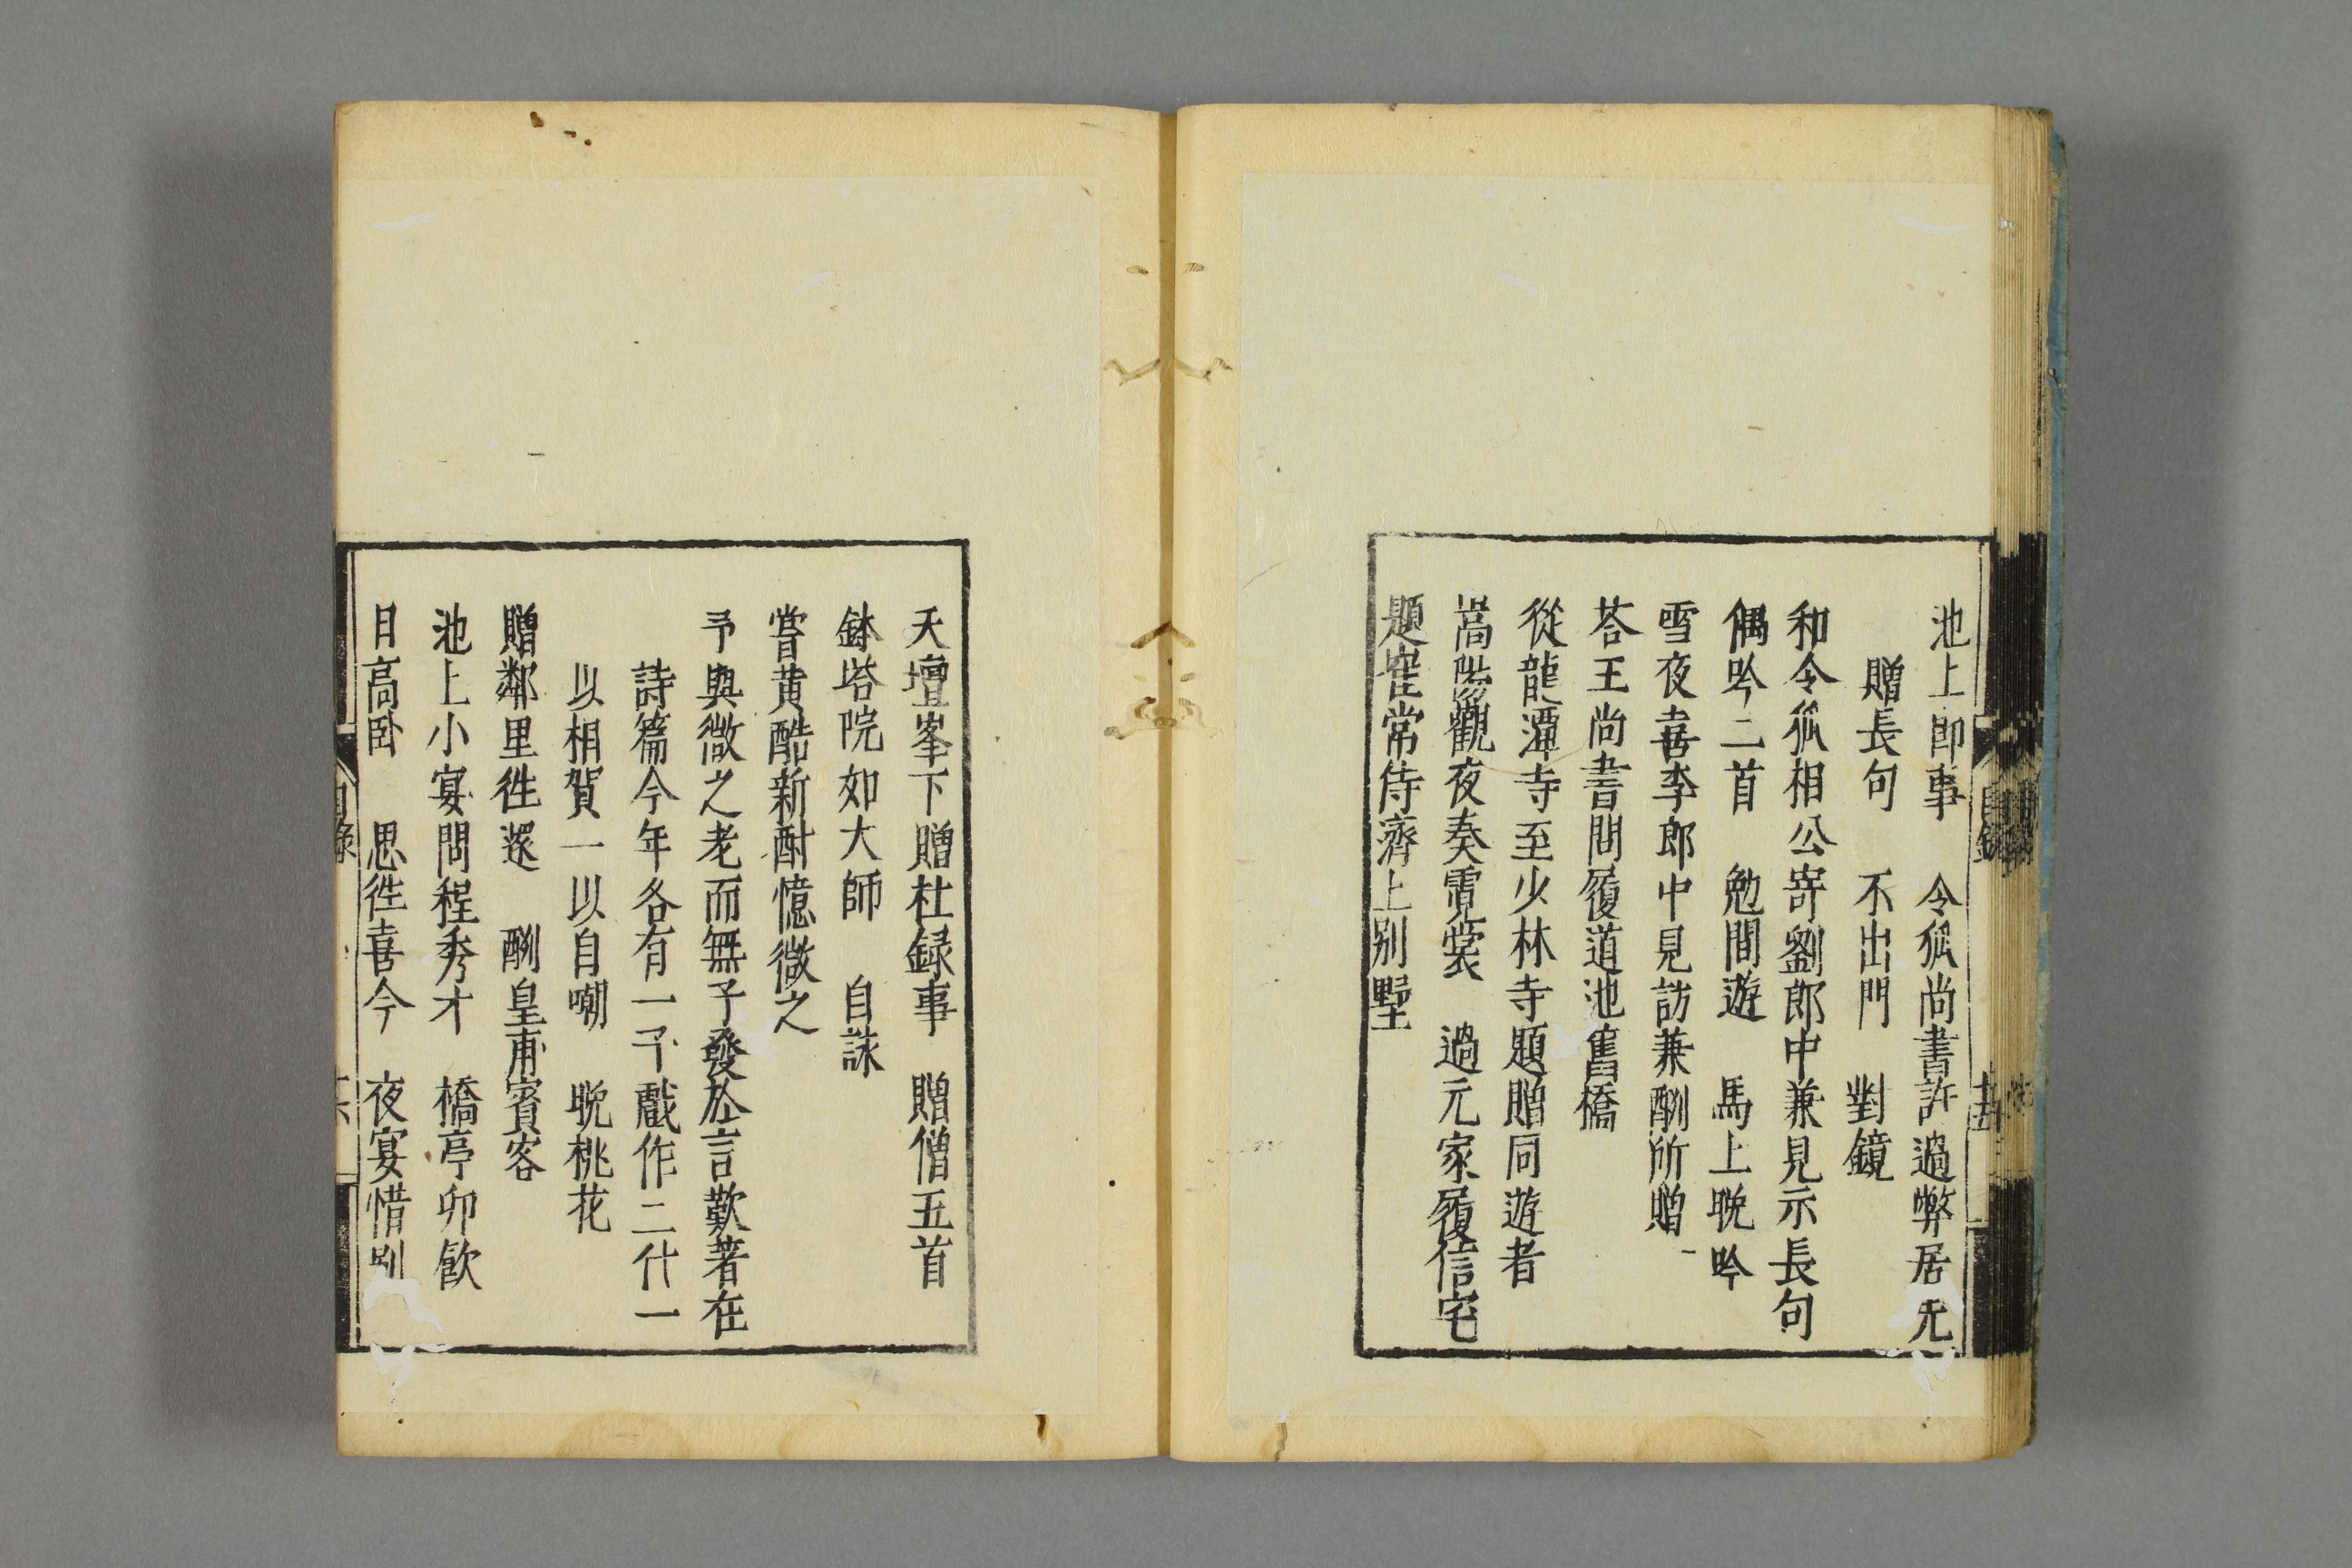 池上即事　令狐尚書許過弊居先
贈長句　不出門　對鏡
和令狐相公寄劉郎中兼見示長句
偶吟二首　勉閒遊　馬上晩吟
雪夜喜李郎中見訪兼酬所贈
荅王尚書問履道池舊橋
從龍潭寺至少林寺題贈同遊者
嵩陽觀夜奏霓裳　過元家履信宅
題崔常侍濟上别墅
目録
天壇峯下贈杜録事　贈僧五首
鉢塔院如大師　自詠
嘗黄醅新酎憶微之
予與微之老而無子發於言歎著在
詩篇今年各有一子戲作二什一
以相賀一以自嘲　晩桃花
贈鄰里徃還　酬皇甫賓客
池上小宴問程秀才　橋亭卯飲
日高卧　思徃喜今　夜宴惜别
目録